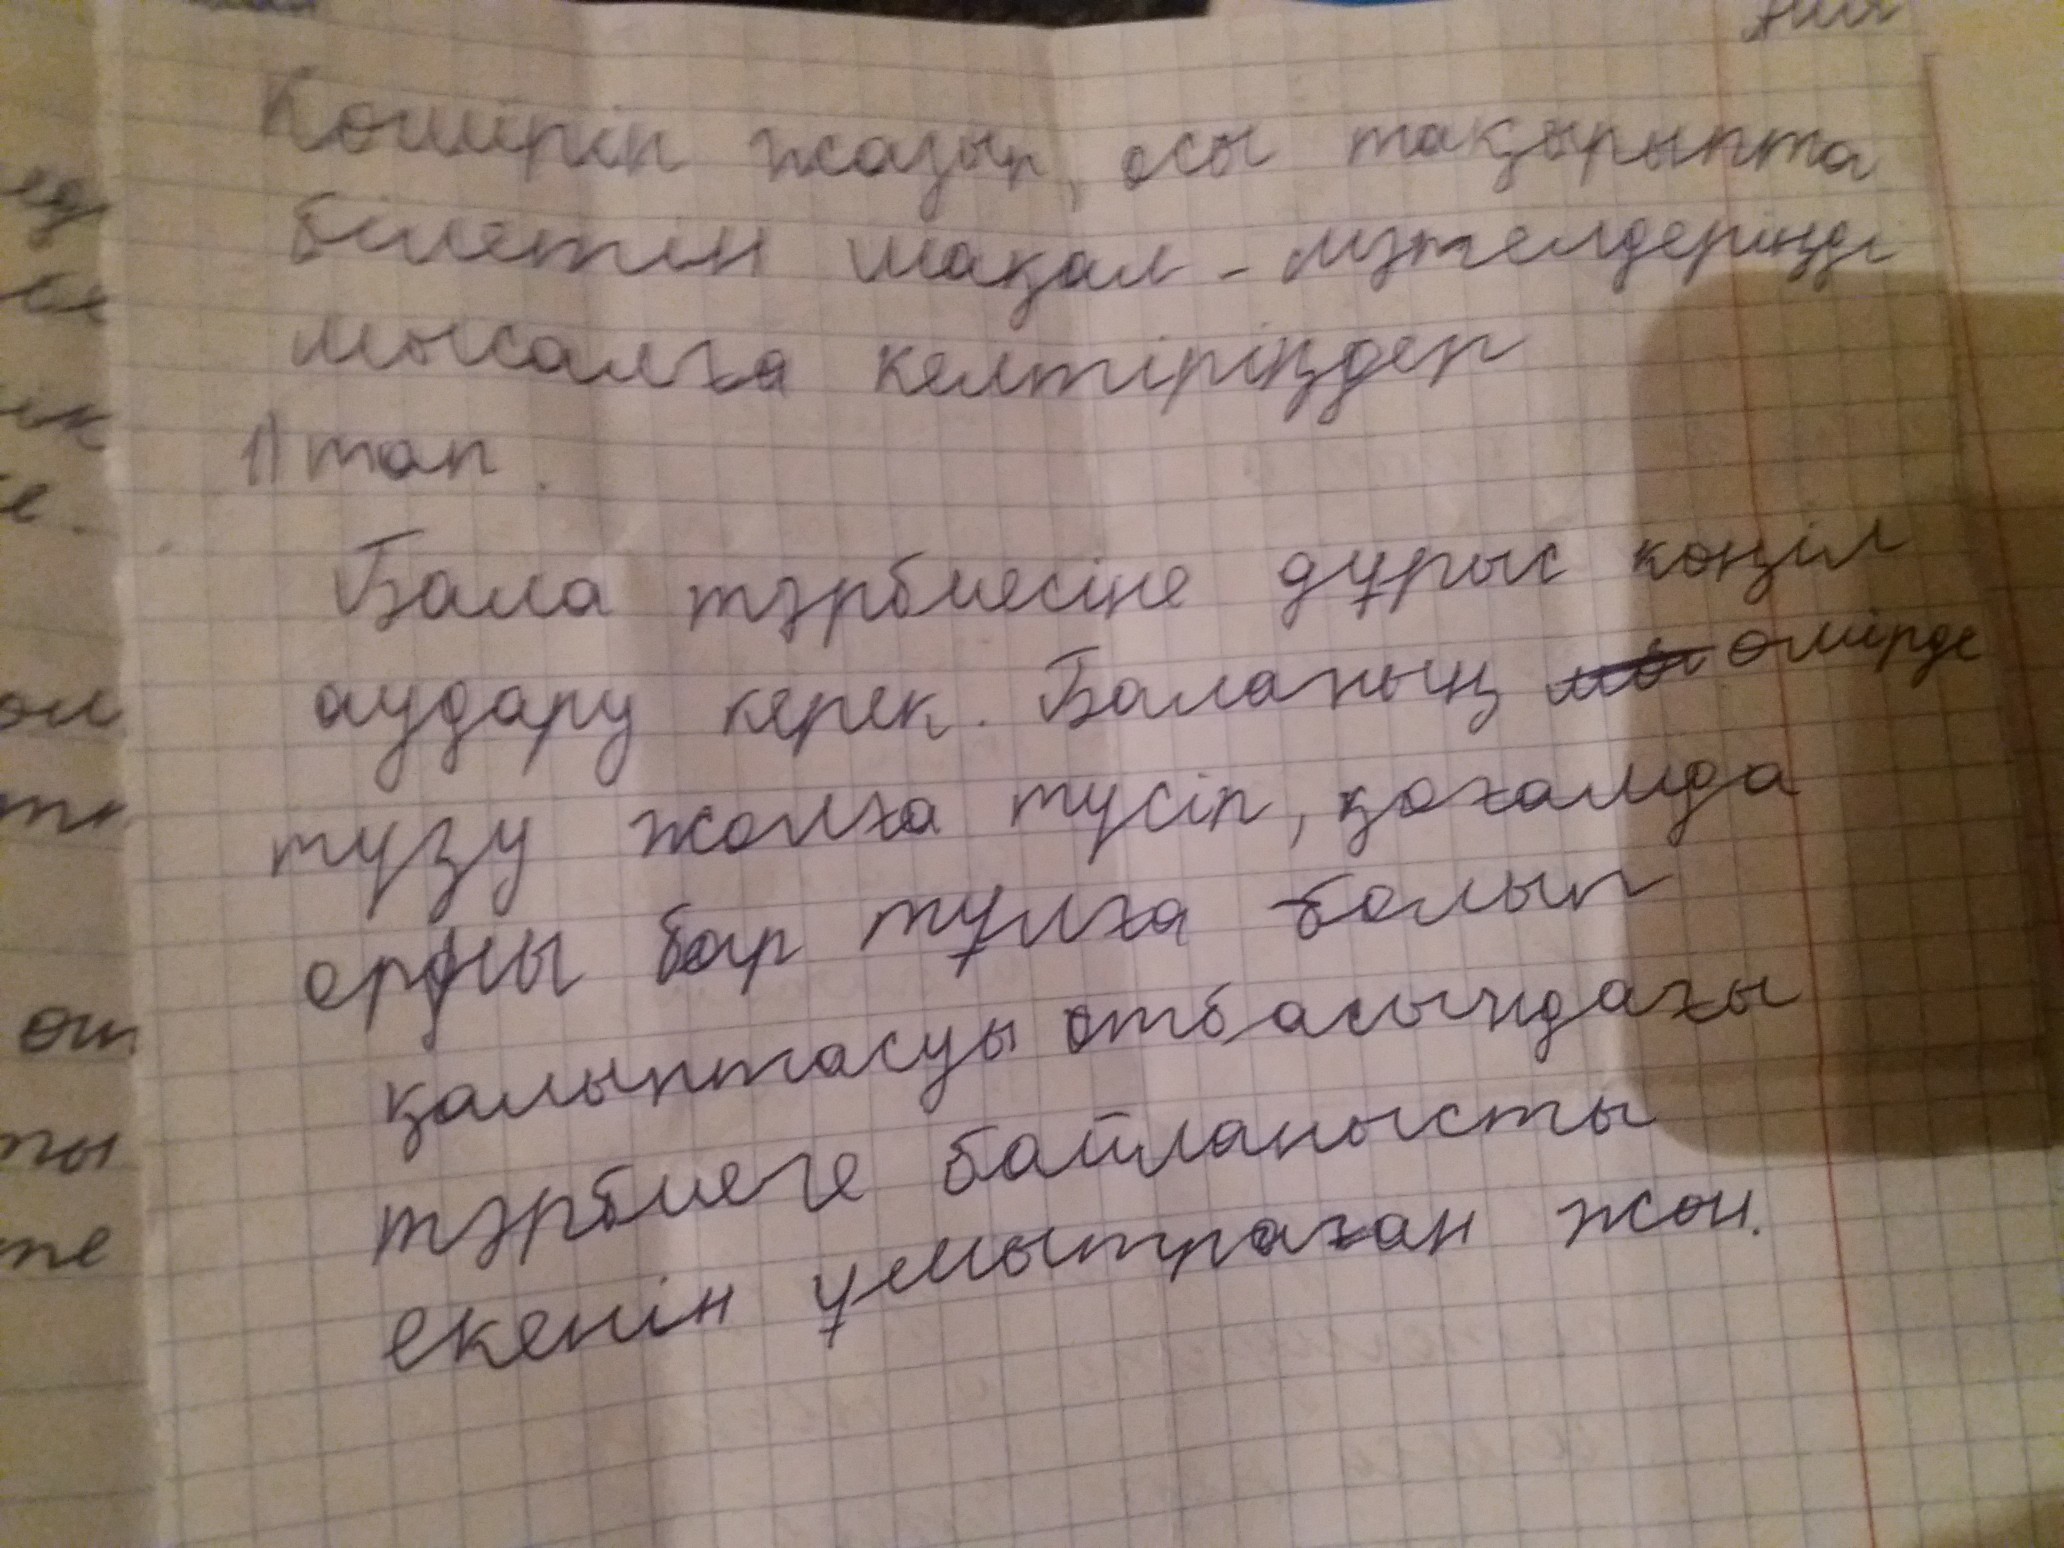 Көшіріп жазып, осы тақырыпта
білетін мақал-мәтелдеріңді
мысалға келтіріңдер
1) топ.
Бала тәрбиесіне дұрыс көңіл
аудару керек. Баланың өмірде
түзу жолға түсіп, қоғамда
орны бар тұлға болып
қалыптасуы отбасындағы
тәрбиеге байланысты
екенін ұмытпаған жөн.